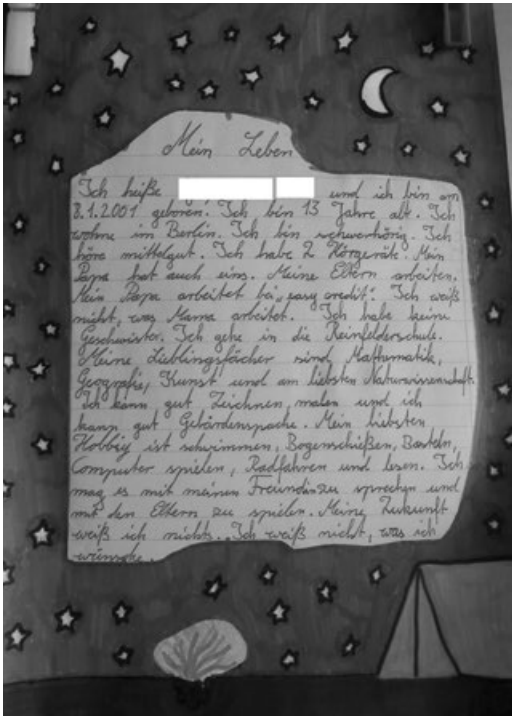 Mein Leben
Ich heiße und ich bin am
8.1.2001 geboren. Ich bin 13 Jahre alt. Ich
wohne im Berlin. Ich bin schwerhörig. Ich
höre mittelgut. Ich habe 2 Hörgeräte. Mein
Papa hat auch eins. Meine Eltern arbeiten.
Mein Papa arbeitet bei „easy credit“. Ich weiß
nicht, was Mama arbeitet. Ich habe keine
Geschwister. Ich gehe in die Reinfelderschule.
Meine Lieblingsfächer sind Mathematik,
Geografie, Kunst und am liebsten Naturwissenschaft.
Ich kann gut Zeichnen, malen und ich
kann gut Gebärdensprache. Mein liebsten
Hobbig ist schwimmen, Bogenschießen, Basteln,
Computer spielen, Radfahren und lesen. Ich
mag es mit meinen Freundin zu sprechen und
mit den Eltern zu spielen. Meine Zukunft
weiß ich nichts. Ich weiß nicht, was ich
wünsche.